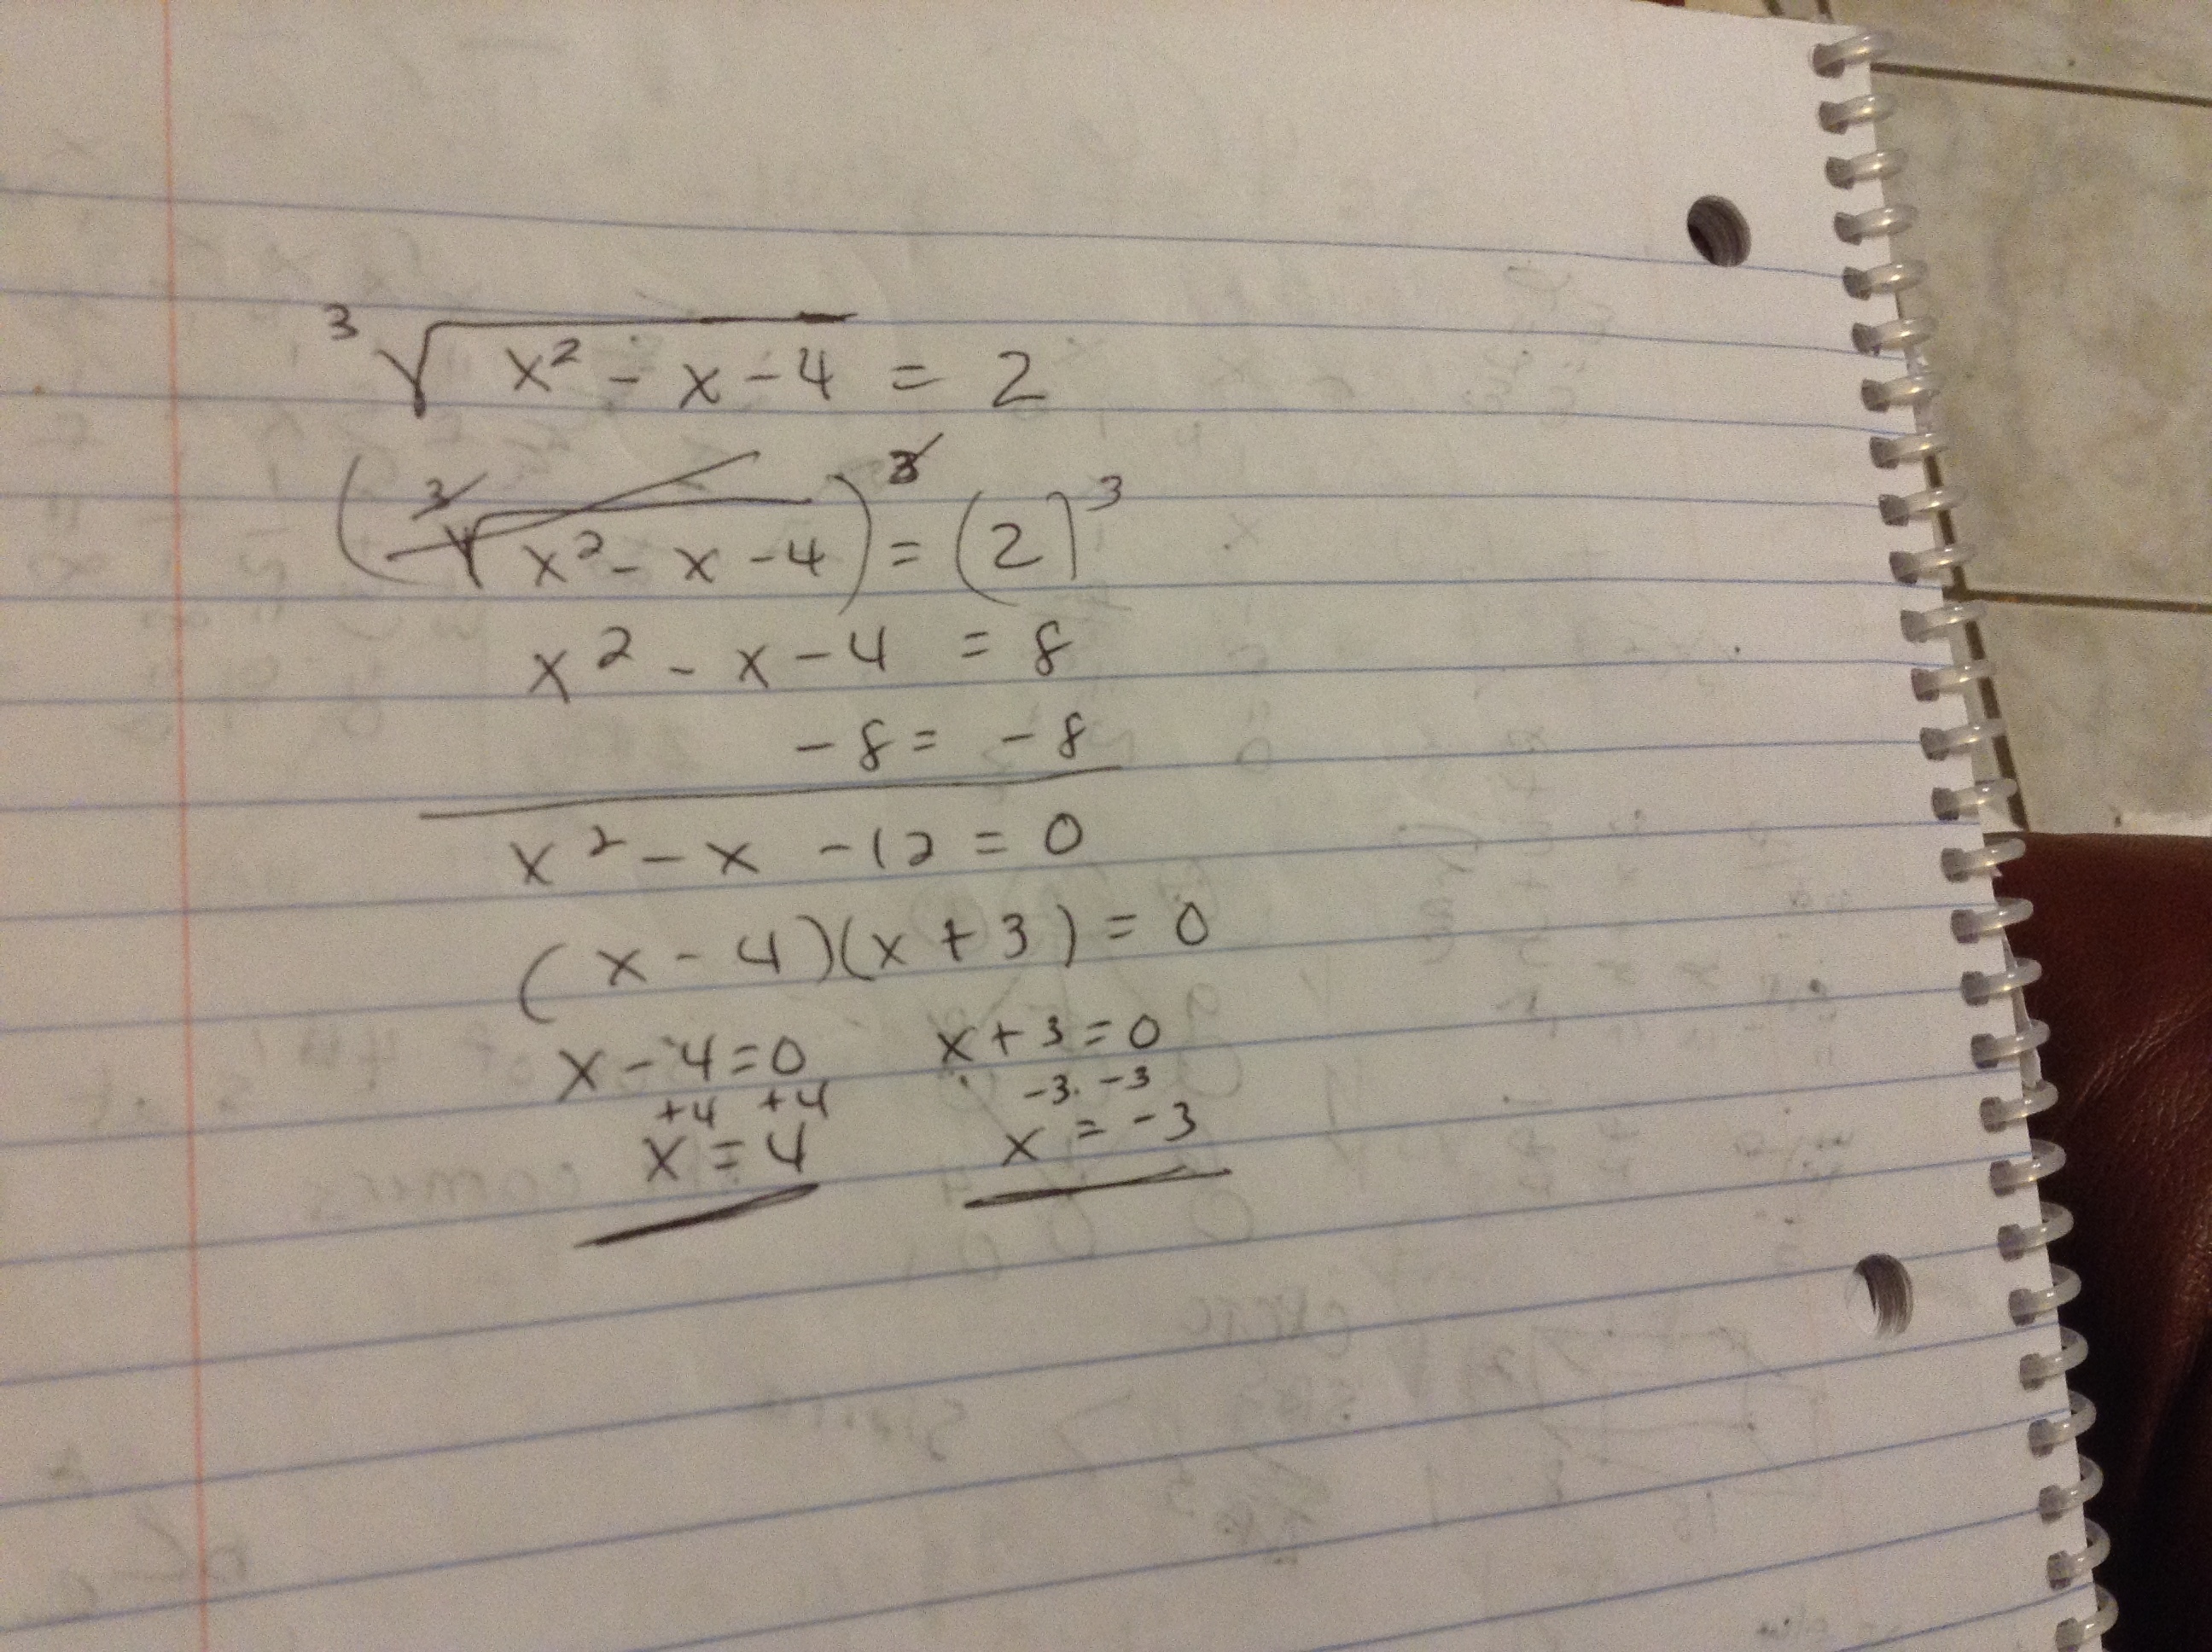 ∛(x² - x - 4) = 2
(∛(x² - x - 4))³ = (2)³
x² - x - 4 = 8
- 8 = - 8
x² - x - 12 = 0
(x - 4)(x + 3) = 0
x - 4 = 0    x + 3 = 0
+4 +4    -3 -3
x = 4    x = -3